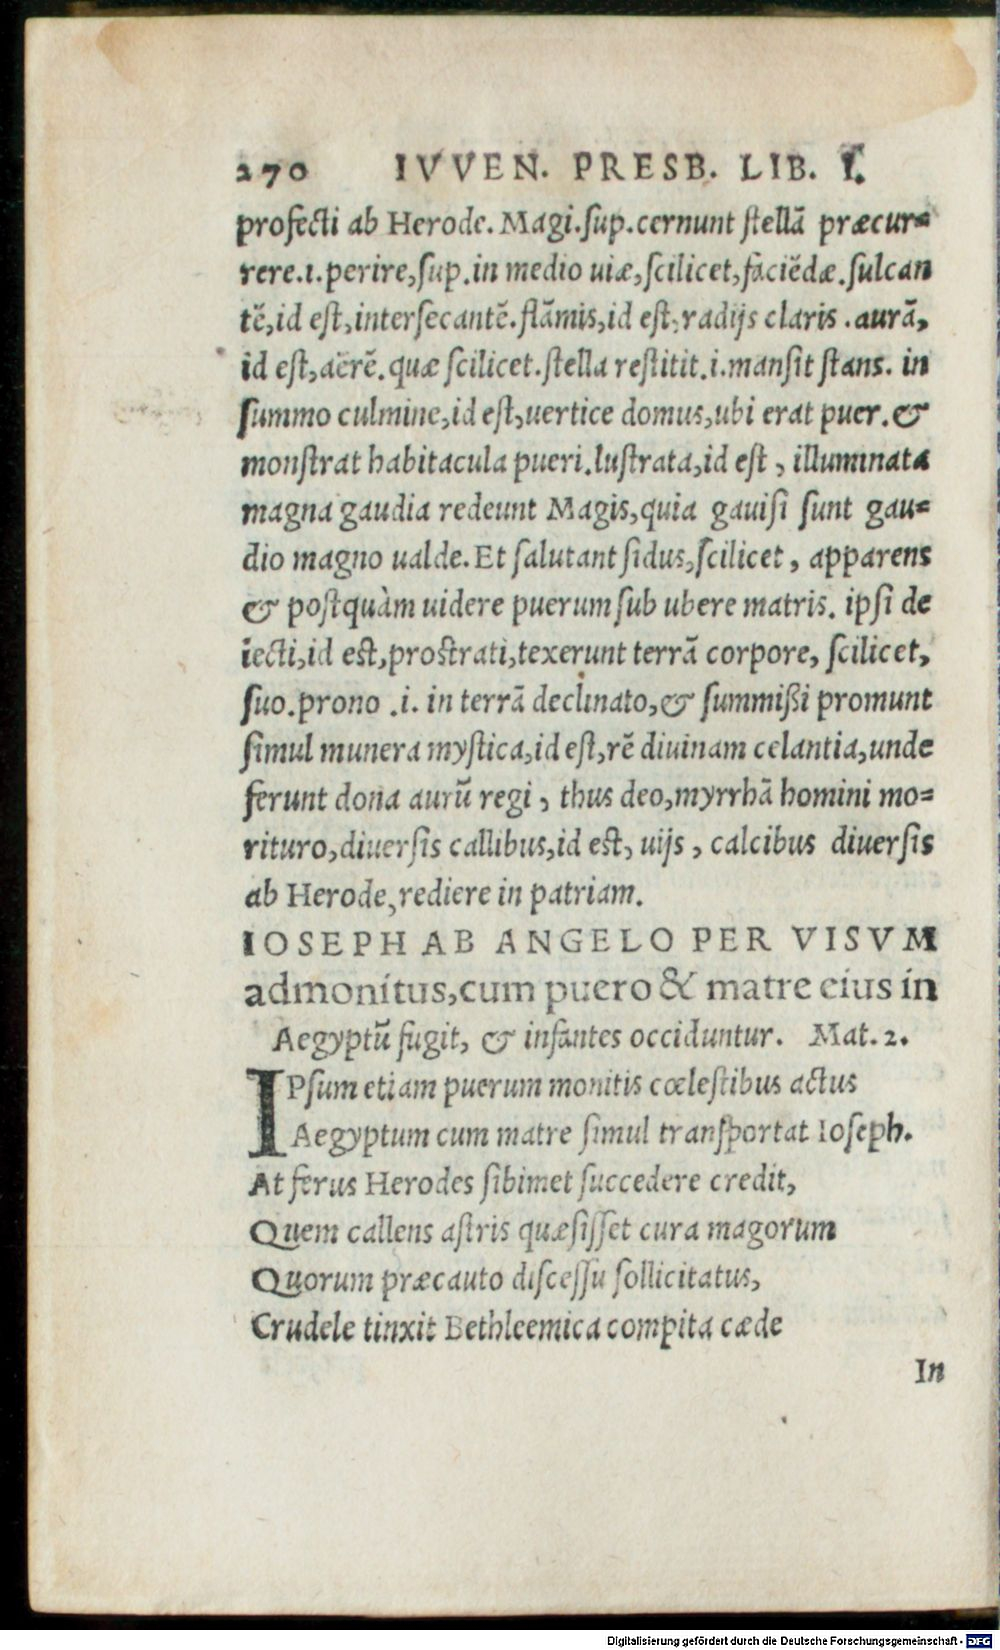 270 IVVEN. PRESB. LIB. I.
profecti ab Herode. Magi.sup.cernunt stellã præcur=
rere.ı.perire,sup.in medio uiæ,scilicet,faciẽdæ.sulcan
tẽ,id est,intersecantẽ.flãmis,id est,radijs claris .aurã,
id est,aërẽ.quæ scilicet.stella restitit.i.mansit stans. in
summo culmine,id est,uertice domus,ubi erat puer.&
monstrat habitacula pueri.lustrata,id est , illuminata
magna gaudia redeunt Magis,quia gauisi sunt gau=
dio magno ualde.Et salutant sidus,scilicet , apparens
& postquàm uidere puerum sub ubere matris. ipsi de
iecti,id est,prostrati,texerunt terrã corpore, scilicet,
suo.prono .i. in terrã declinato,& summißi promunt
simul munera mystica,id est,rẽ diuinam celantia,unde
ferunt dona aurũ regi , thus deo,myrrhã homini mo=
rituro,diuersis callibus,id est, uijs , calcibus diuersis
ab Herode,rediere in patriam.
IOSEPH AB ANGELO PER VISVM
admonitus,cum puero & matre eius in
Aegyptũ fugit, & infantes occiduntur. Mat.2.
IPsum etiam puerum monitis cœlestibus actus
Aegyptum cum matre simul transportat Ioseph.
At ferus Herodes sibimet succedere credit,
Quem callens astris quæsisset cura magorum
Quorum præcauto discessu sollicitatus,
Crudele tinxit Bethleemica compita cæde
In
Digitalisierung gefördert durch die Deutsche Forschungsgemeinschaft - DFG